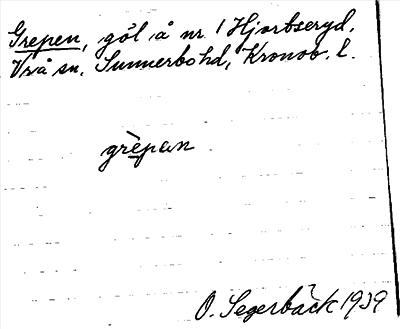 Grepen, göl å nr 1 Hjortseryd,
Vrå sn, Sunnerbo hd, Kronob. l.
grèpan
O. Segerbäck 1939